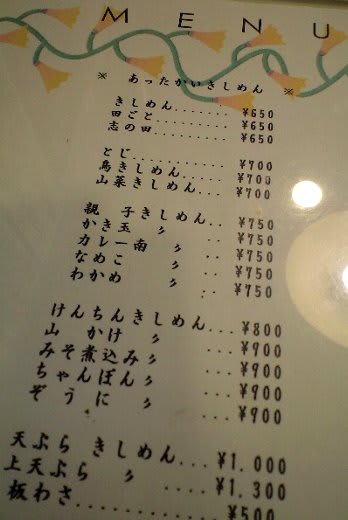 MENU
※ あったかいきしめん ※
きしめん........¥650
田ごと..........¥650
志の田..........¥650
とじ............¥700
鳥きしめん......¥700
山菜きしめん....¥700
親 子きしめん..¥750
かき玉 〃 ..¥750
カレー南 〃 ..¥750
なめこ 〃 ..¥750
わかめ 〃 ..¥750
けんちんきしめん...¥800
山 かけ 〃 ...¥900
みそ煮込み〃 ...¥900
ちゃんぽん〃 ...¥900
ぞうに 〃 ...¥900
天ぷら きしめん...¥1.000
上天ぷら 〃 ....¥1.300
板わさ............¥500